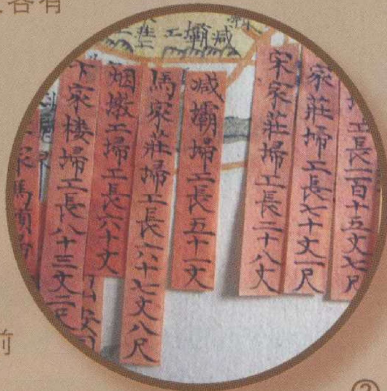 容有
減
壩
工
工長一百十五丈七尺
家莊埽工長七十丈一尺
宋家莊埽工長二十八丈
減壩埽工長五十一丈
馬家莊埽工長六十七丈八尺
烟墩工埽工長六十丈
家樓埽工長八十三丈二尺
前
②